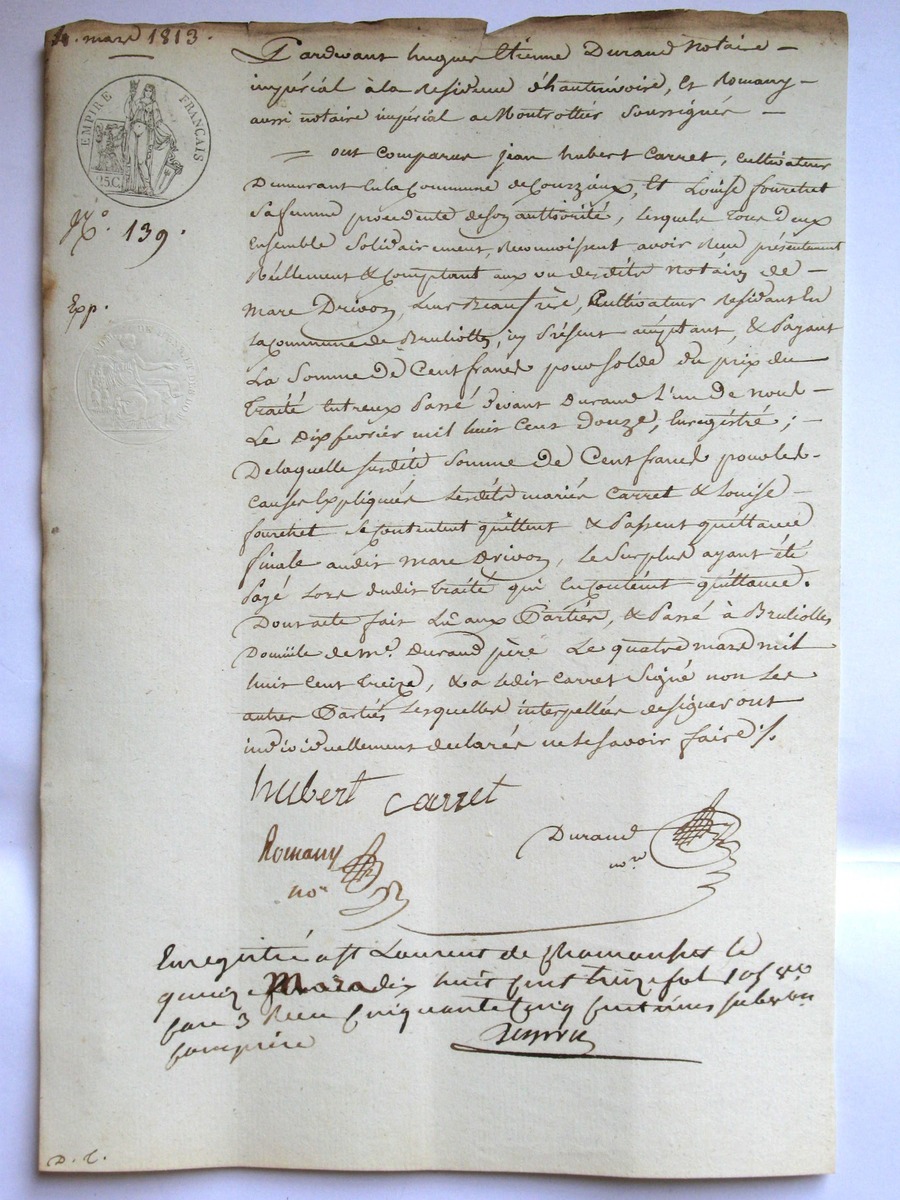 4. mars 1813.
EMPIRE FRANÇAIS
25C
N.º 139.
Exp.
Pardevant hugues Etienne Durand Notaire
impérial à la Residence d'hauterivoire, Et Romany
aussi notaire impérial a Montrottier soussignés
ont comparus jean hubert Carret, cultivateur
Demeurant En la Commune de Courzieux, Et Louise fourchet
sa femme procedente de son authorité, lesquels tous deux
Ensemble solidairement, Reconnoissent avoir Reçu présentement
Réellement & Comptant aux vu desdits Notaires de
Marc Drivon, Leur Beaufrère, Cultivateur Residant En
la Commune de Brulioles, icy Présent acceptant, & Payant
La Somme De Cent francs pour solde du prix du
Traité Entreux Passé devant Durand l'un de nous
Le dix fevrier mil huit Cent Douze, Enregistré ;
De laquelle susdite somme de Cent francs pour les
causes Expliquées lesdits mariés Carret & Louise
fourchet se contentent quittent & Passent quittance
finale audit Marc Drivon, le surplus ayant été
Payé lors dudit Traité qui En Contient quittance.
Dont acte fait Lû aux Parties, & Passé à Brulioles
Domicile de Me. Durand père Le quatre mars mil
huit cent treize, & a ledit Carret Signé non Les
autres Parties Lesquelles interpellées de signer ont
individuellement declarés ne le savoir faire ./.
hubert carret
Romany
nore
Durand
nore
Enregistré a St Laurent de Chamousset le
quinze Mars dix huit cent treize fol 105 vo
case 3 Reçu Cinquante Cinq Centimes subvon
Comprise
D. C.